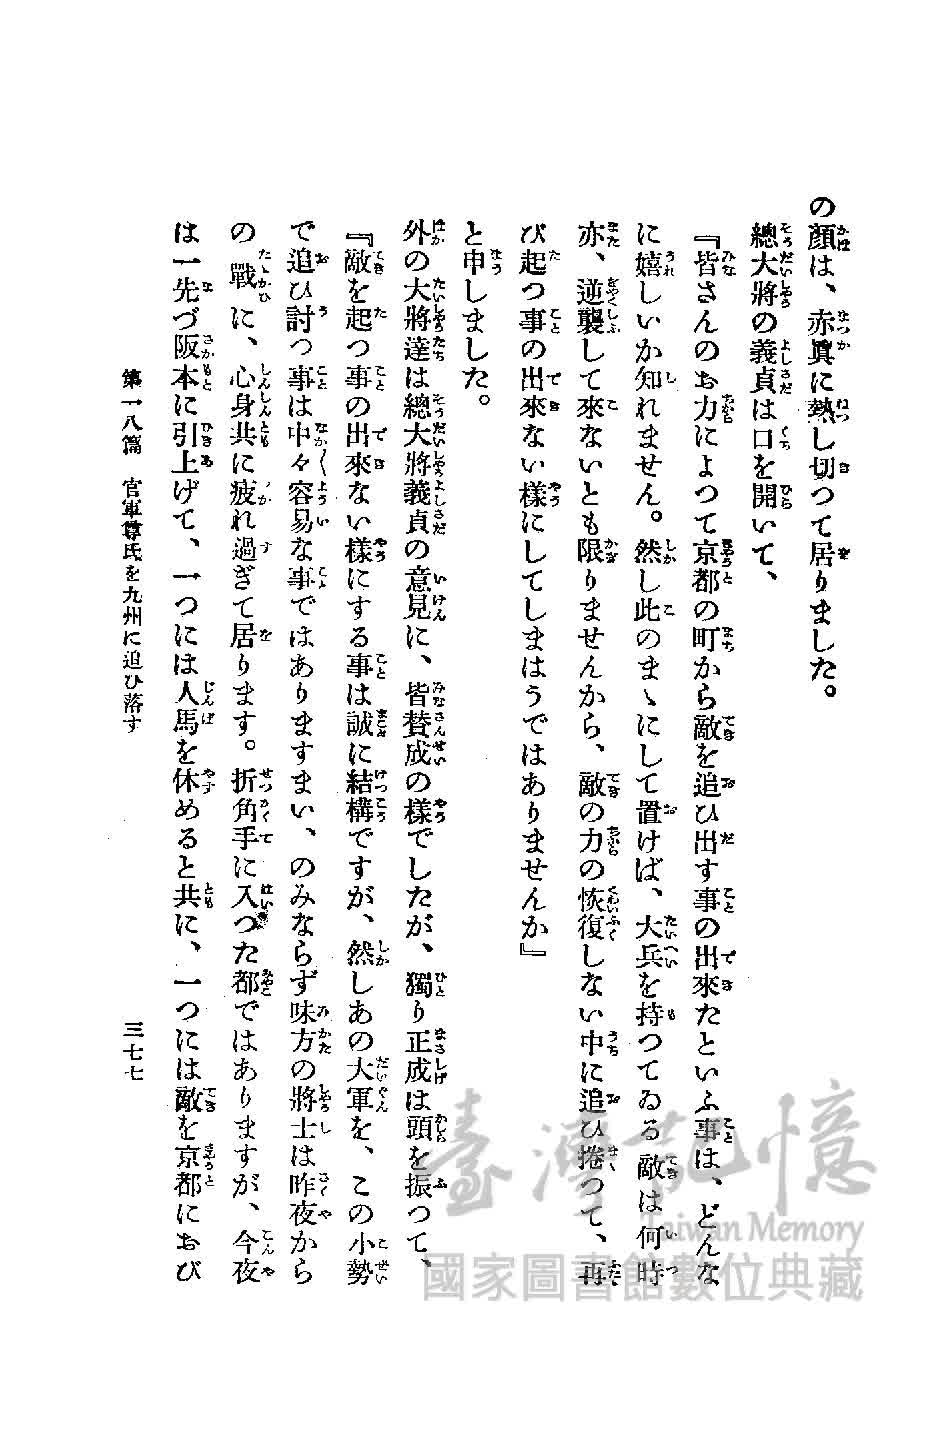 の顔は、赤眞に熱し切つて居りました。
總大將の義貞は口を開いて、
『皆さんのお力によつて京都の町から敵を追ひ出す事の出來たといふ事は、どんな
に嬉しいか知れません。然し此のまゝにして置けば、大兵を持つてゐる敵は何時
亦、逆襲して來ないとも限りませんから、敵の力の恢復しない中に追ひ捲つて、再
び起つ事の出來ない樣にしてしまはうではありませんか』
と申しました。
外の大將達は總大將義貞の意見に、皆賛成の樣でしたが、獨り正成は頭を振つて、
『敵を起つ事の出來ない樣にする事は誠に結構ですが、然しあの大軍を、この小勢
で追ひ討つ事は中々容易な事ではありますまい、のみならず味方の將士は昨夜から
の戰に、心身共に疲れ過ぎて居ります。折角手に入つた都ではありますが、今夜
は一先づ阪本に引上げて、一つには人馬を休めると共に、一つには敵を京都におび
第一八篇 官軍尊氏を九州に追ひ落す
三七七
臺灣記憶
Taiwan Memory
國家圖書館數位典藏